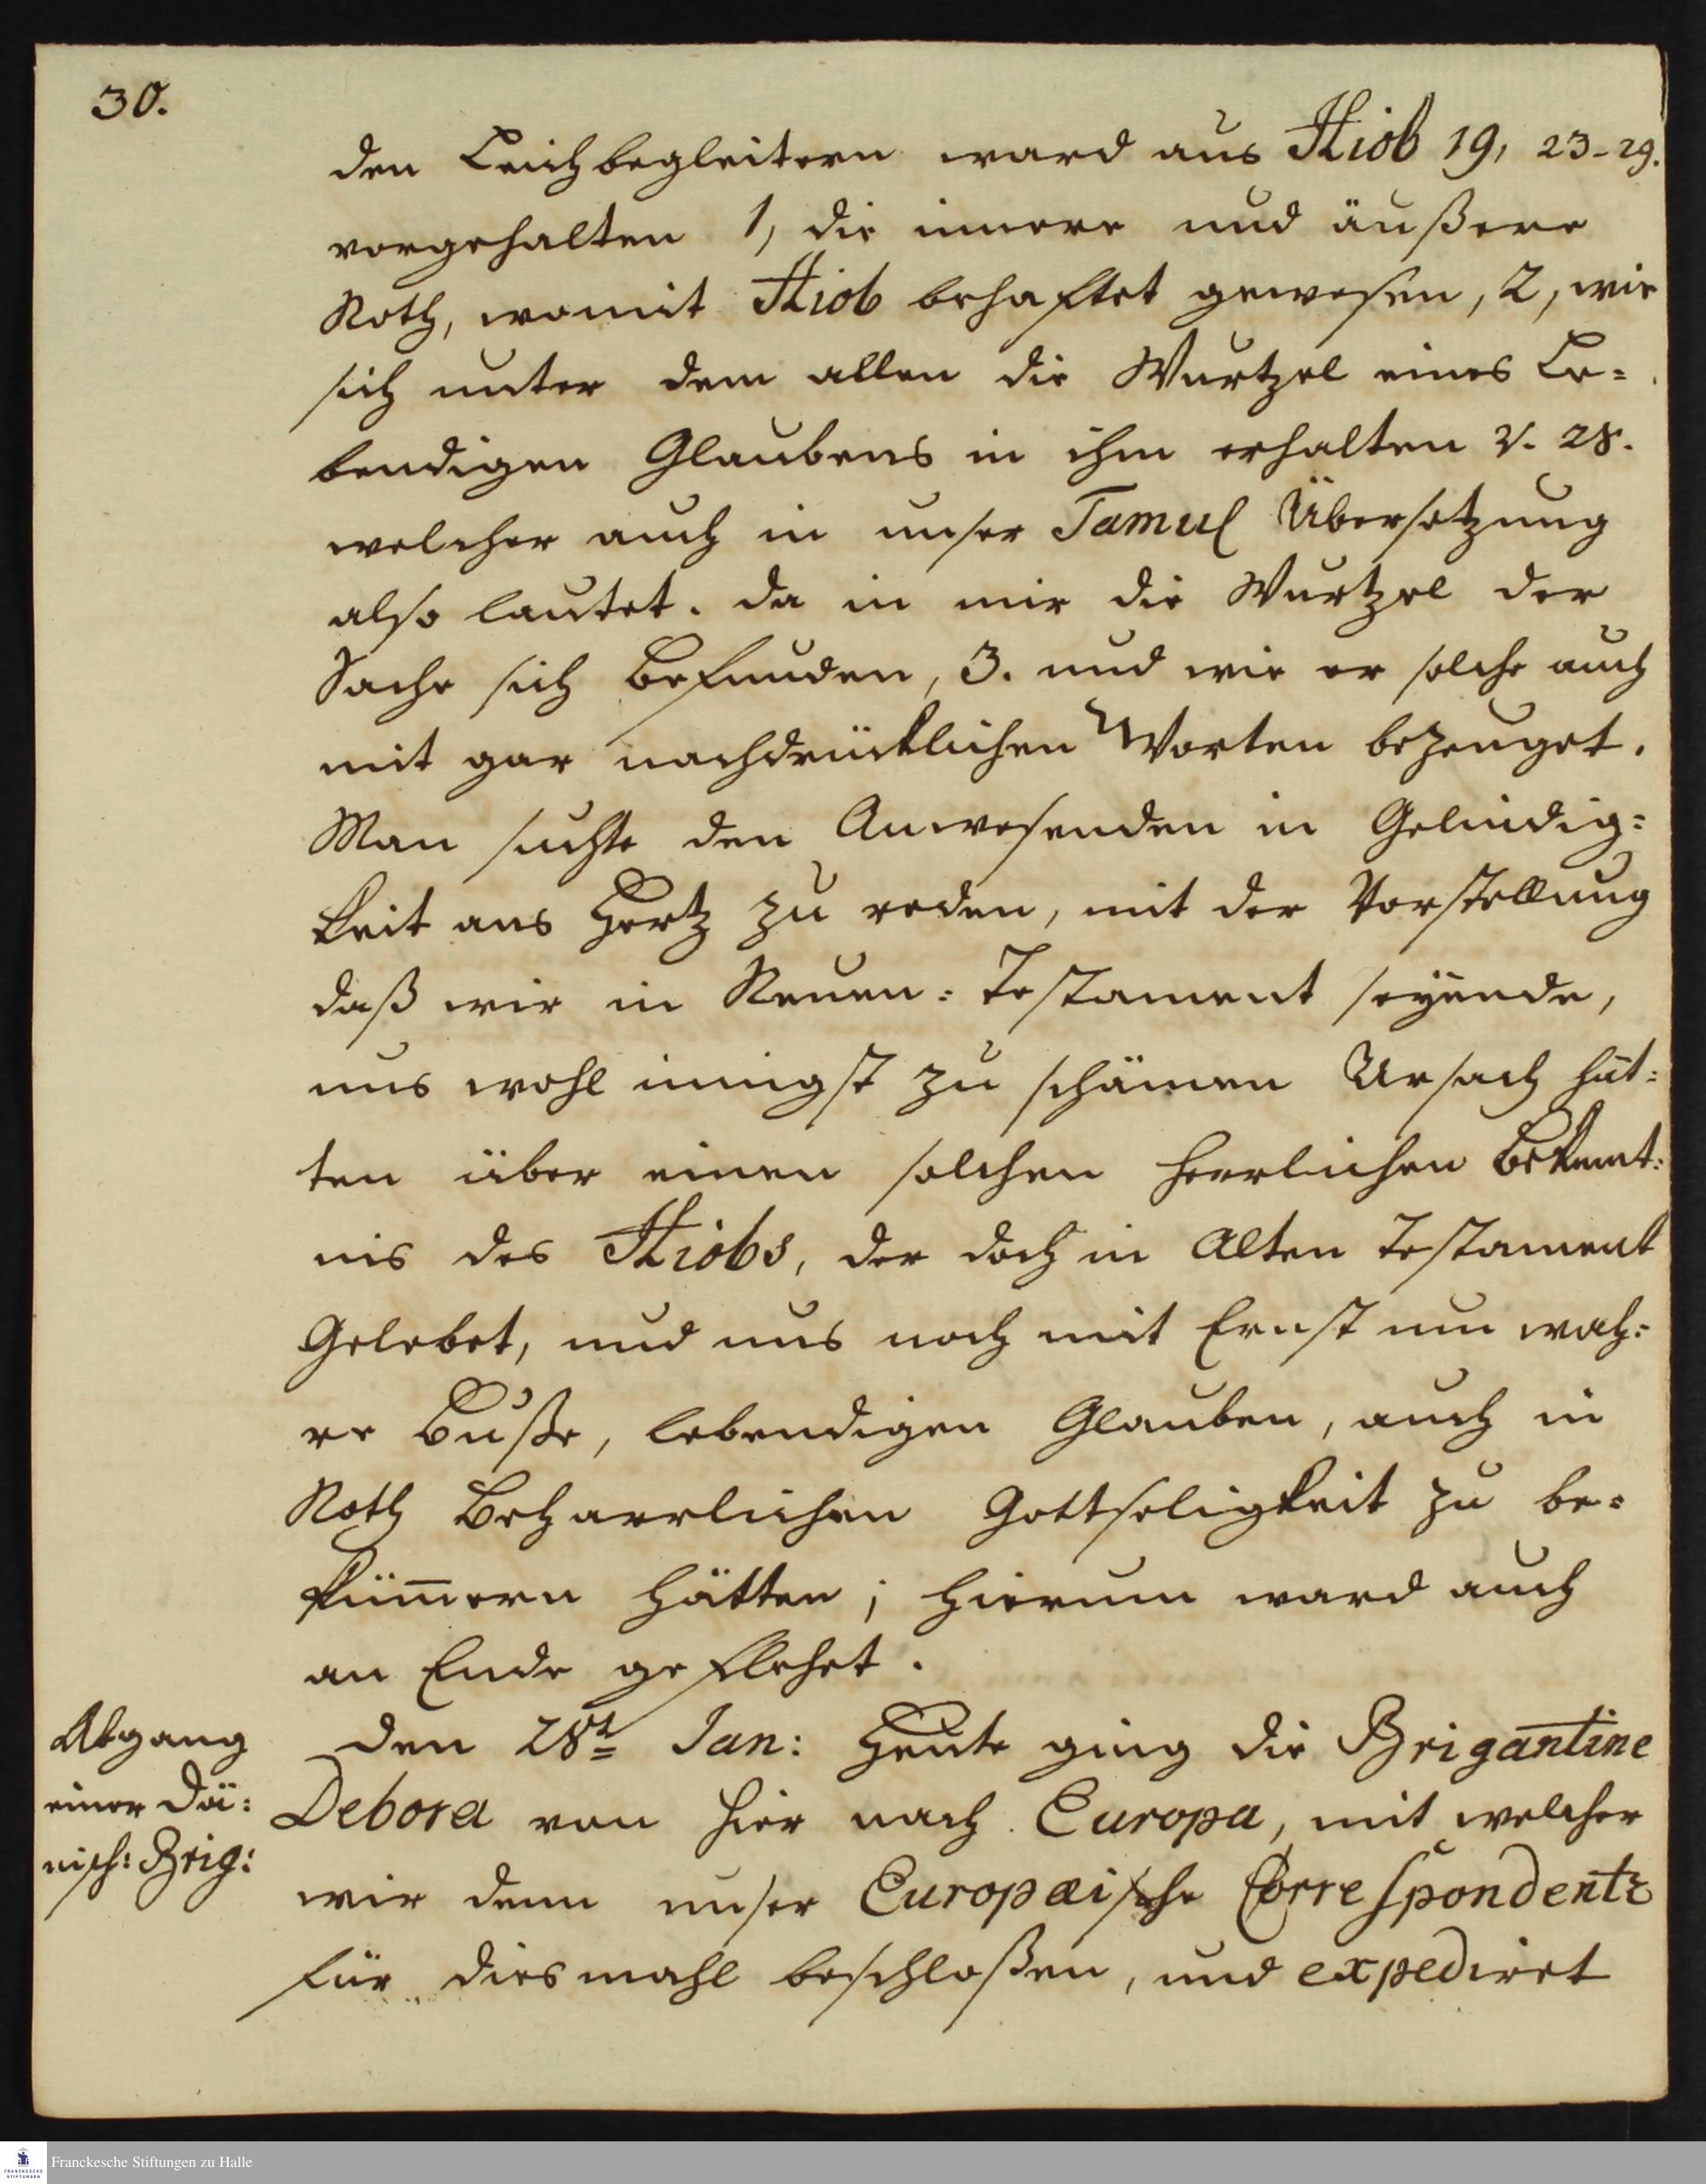 30.
den Leichbegleitern ward aus Hiob 19, 23-29.
vorgehalten 1, die innere und äußere
Noth, womit Hiob behaftet gewesen, 2, wie
sich unter dem allen die Wurtzel eines Le=
bendigen Glaubens in ihm erhalten v. 28.
welcher auch in unser Tamul Übersetzung
also lautet. da in mir die Wurtzel der
Sache sich befunden, 3. und wie er solche auch
mit gar nachdrücklichen Worten bezeuget.
Man suchte den Anwesenden in Gelindig=
keit ans Hertz zu reden, mit der Vorstellung
daß wir in Neuen=Testament seyende,
uns wohl innigst zu schämen Ursach hät=
ten über einen solchen herrlichen Bekennt=
nis des Hiobs, der doch in Alten Testament
Gelebet, und uns noch mit Ernst um wah=
re Buße, lebendigen Glauben, auch in
Noth Beharrlichen Gottseligkeit zu be=
küm̅ern hätten; hierum ward auch
an Ende geflehet.
Abgang
einer Dä=
nisch: Brig:
Den 28t Jan: Heute ging die Brigantine
Debora von hier nach Europa, mit welcher
wir denn unser Europæische Correspondentz
für diesmahl beschloßen, und expediret
Franckesche Stiftungen zu Halle